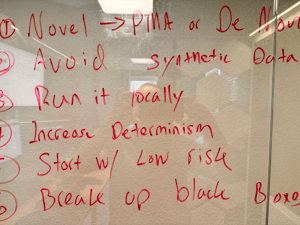 ① Novel → PMA or De Nov
② Avoid synthetic Data
3 Run it locally
4 Increase Determinism
5 Start w/ Low risk
6 Break up black Boxe